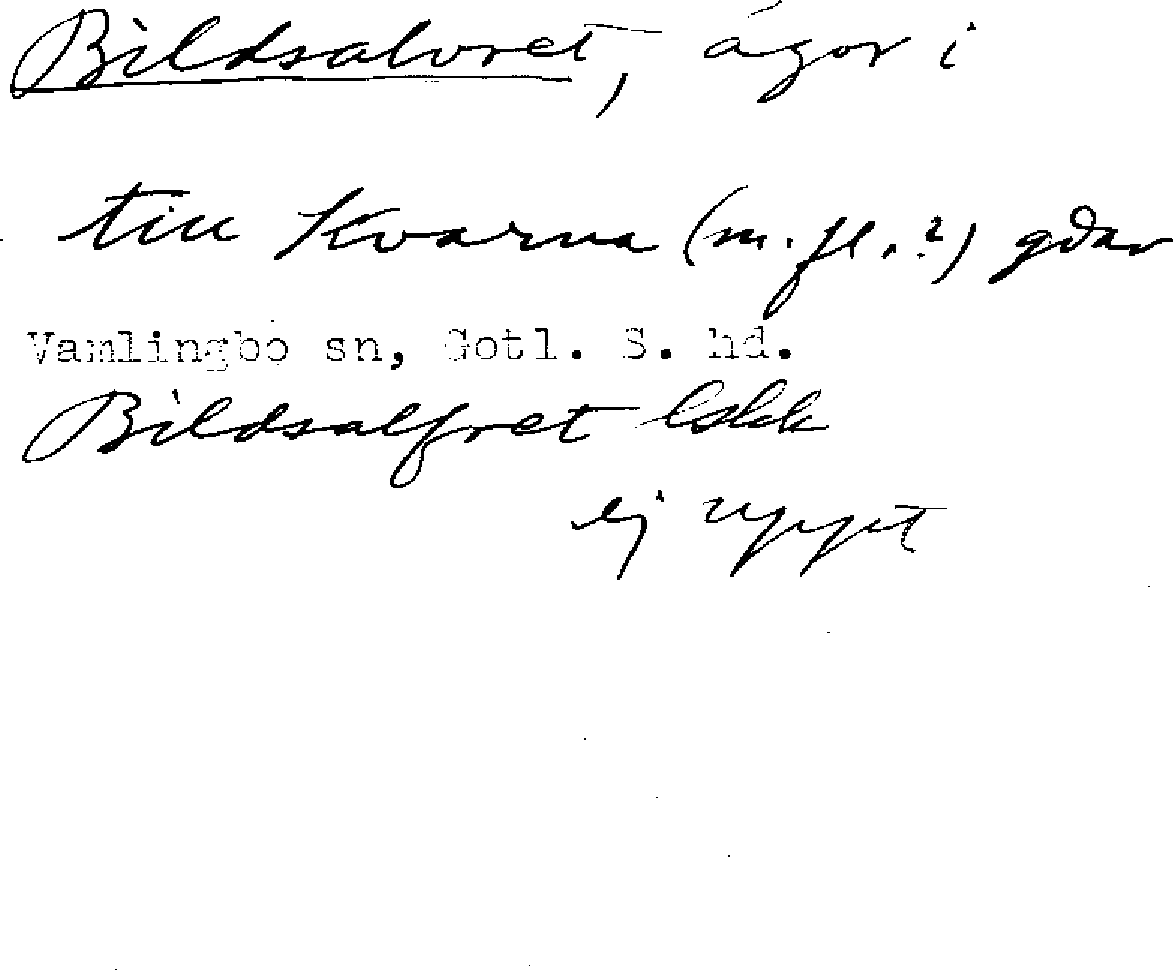 Bildsalvret, ägor i
till Kvarna (m. fl.?) gdar
Vamlingbo sn, Gotl. S. hd.
Bildsalfret
ej uppt